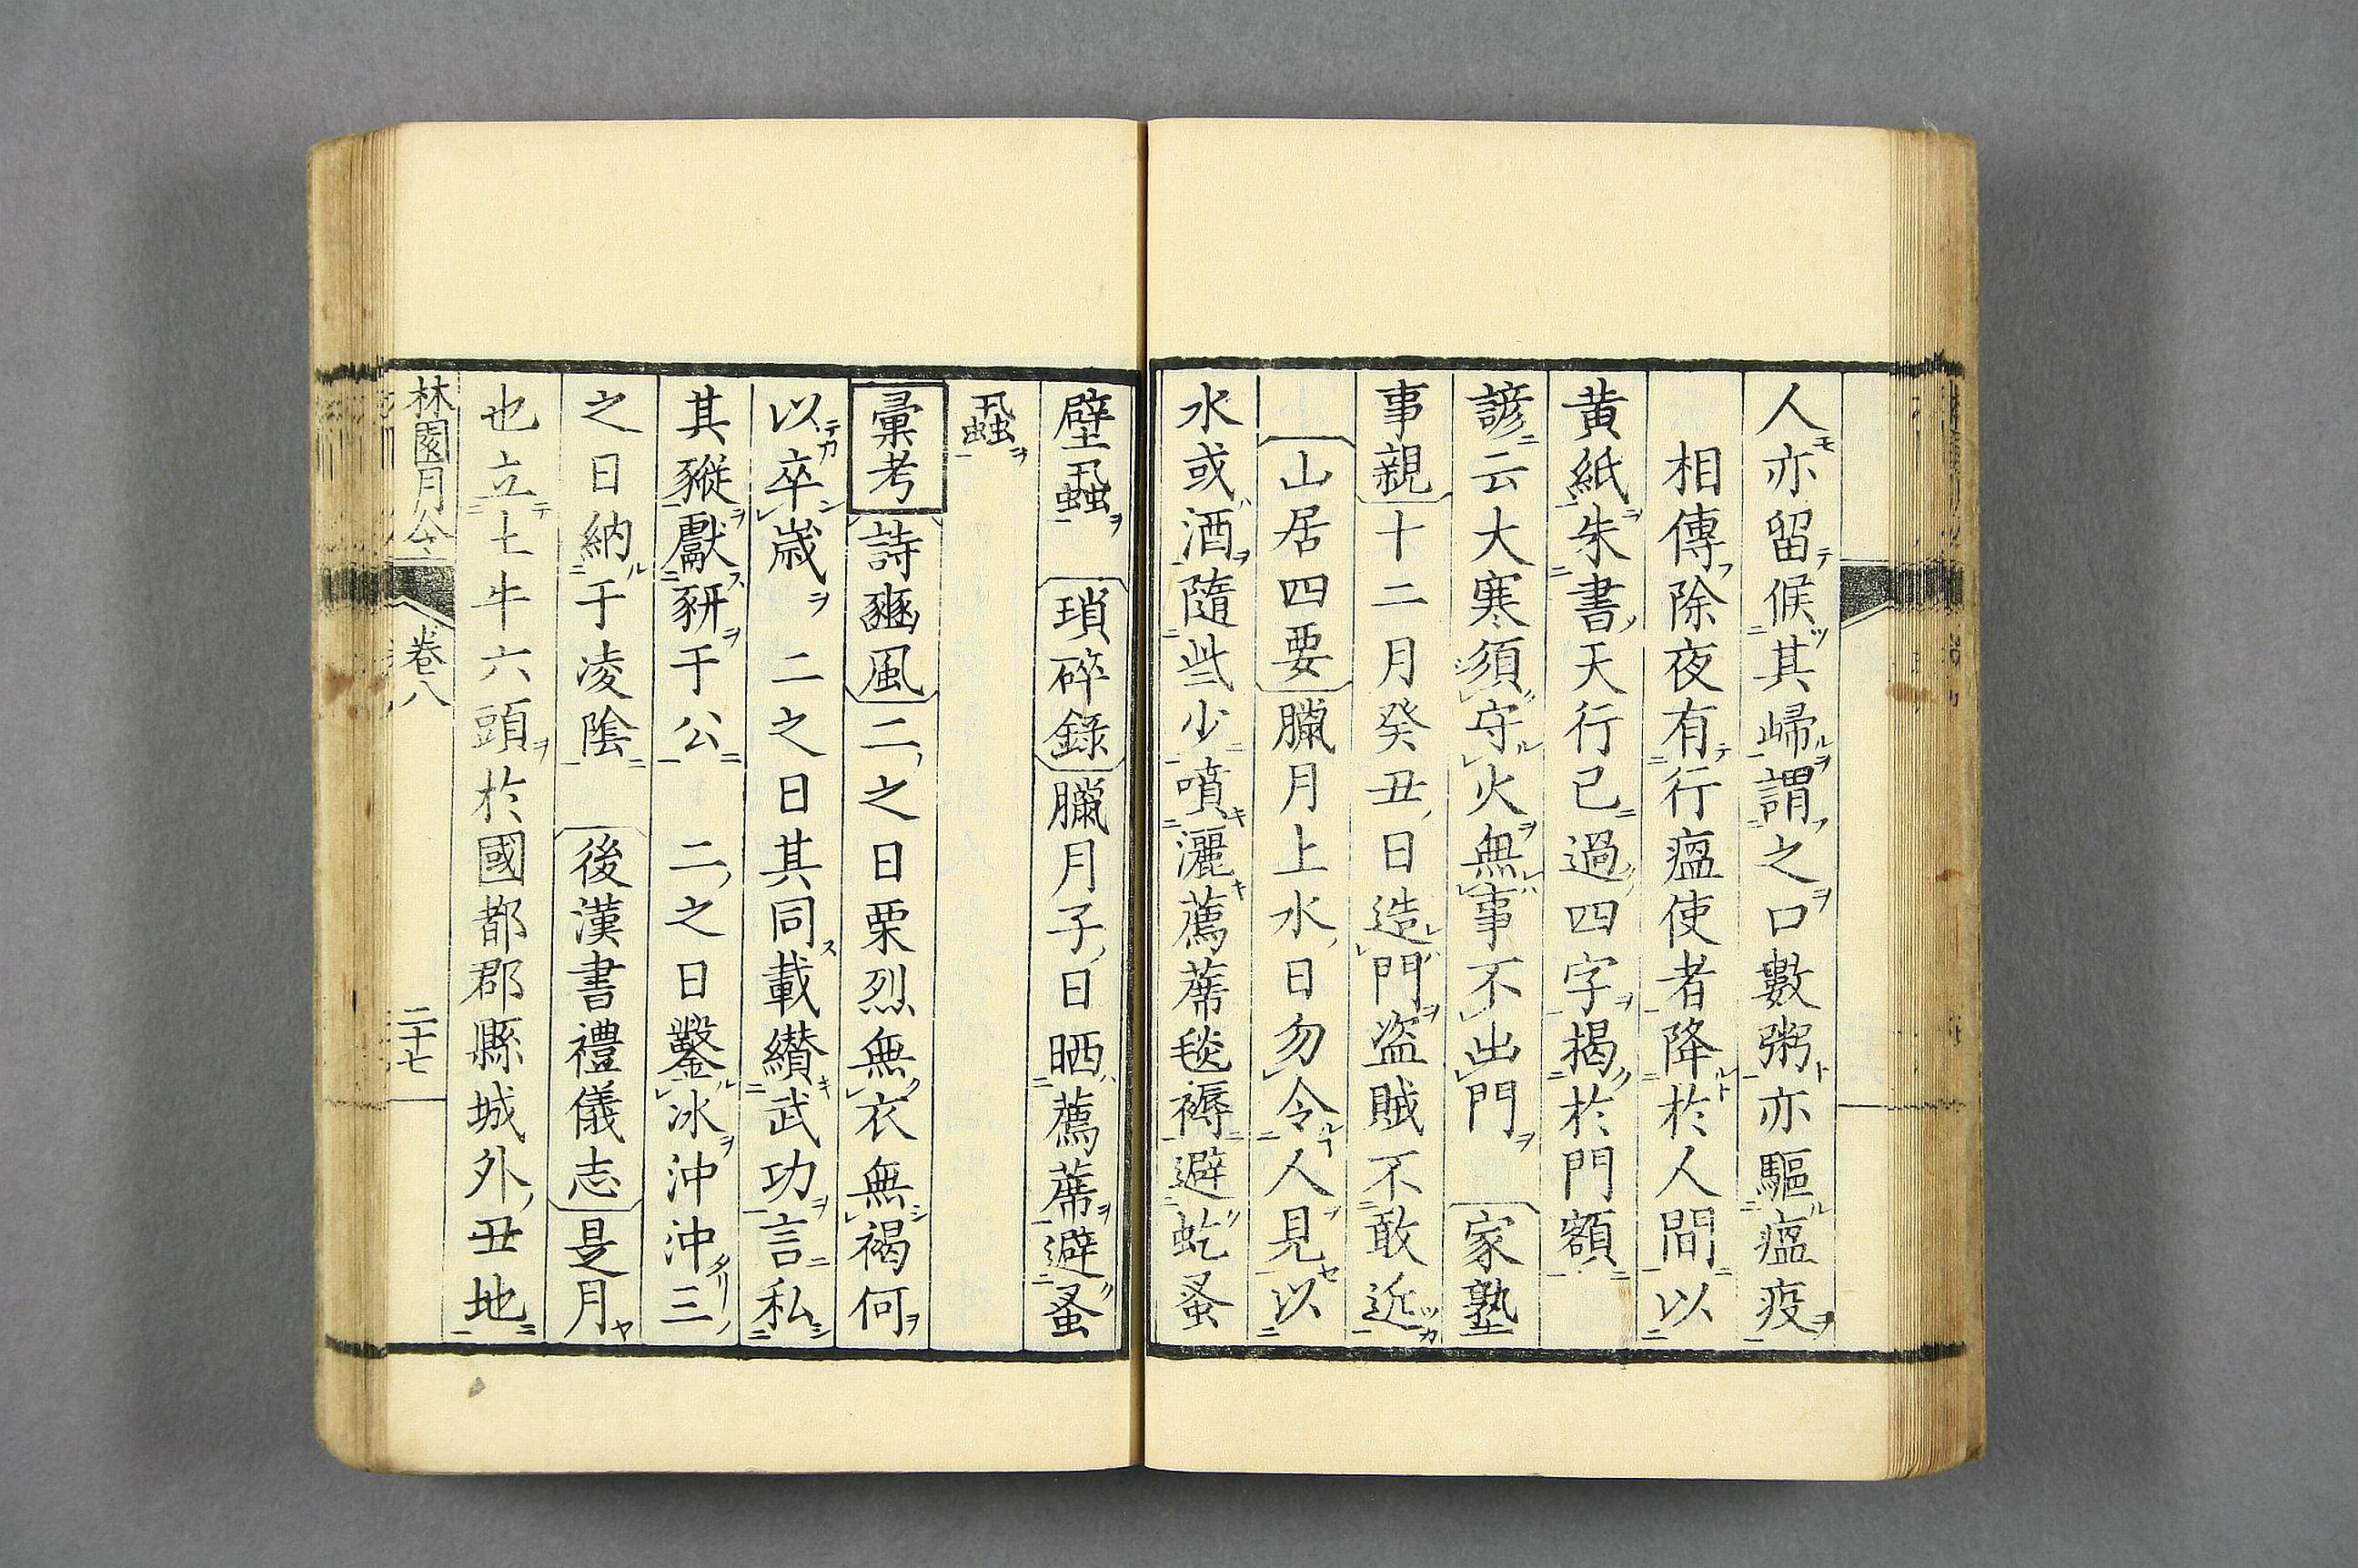 人亦留候其歸謂之口數粥亦驅瘟疫
相傳除夜有行瘟使者降於人間以
黄紙朱書天行已過四字揭於門額
諺云大寒須守火無事不出門 家塾
事親 十二月癸丑日造門盗賊不敢近
山居四要 臘月上水日勿令人見以
水或酒隨些少噴灑薦蓆毯褥避虼蚤
壁蝨 瑣碎錄 臘月子日晒薦蓆避蚤
蝨
彙考 詩豳風 二之日栗烈無衣無褐何
以卒歳 二之日其同載纘武功言私
其豵獻豜于公 二之日鑿冰沖沖三
之日納于凌陰 後漢書禮儀志 是月
也立土牛六頭於國都郡縣城外丑地
林園月令 卷八 二十七